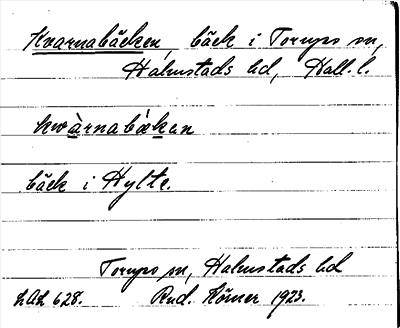 Kvarnabäcken, bäck i Torups sn,
Halmstads hd, Hall. l.
kwàrnabækan
bäck i Hylte.
Torups sn, Halmstads hd
LAL 628. Rud. Körner 1923.